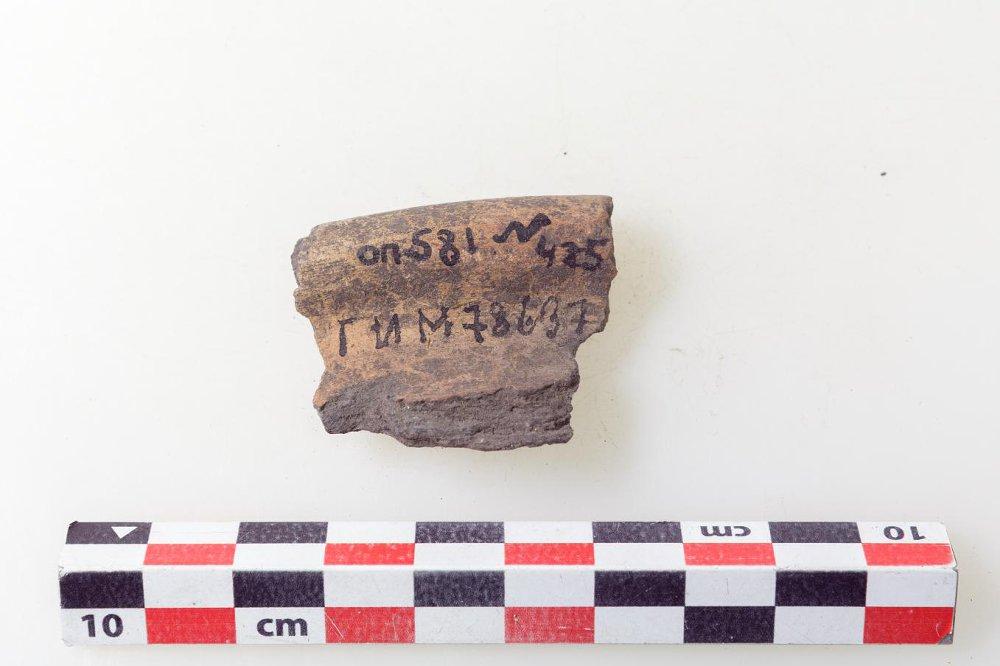 оп.581 № 425
ГИМ 78697
cm 10
10 cm